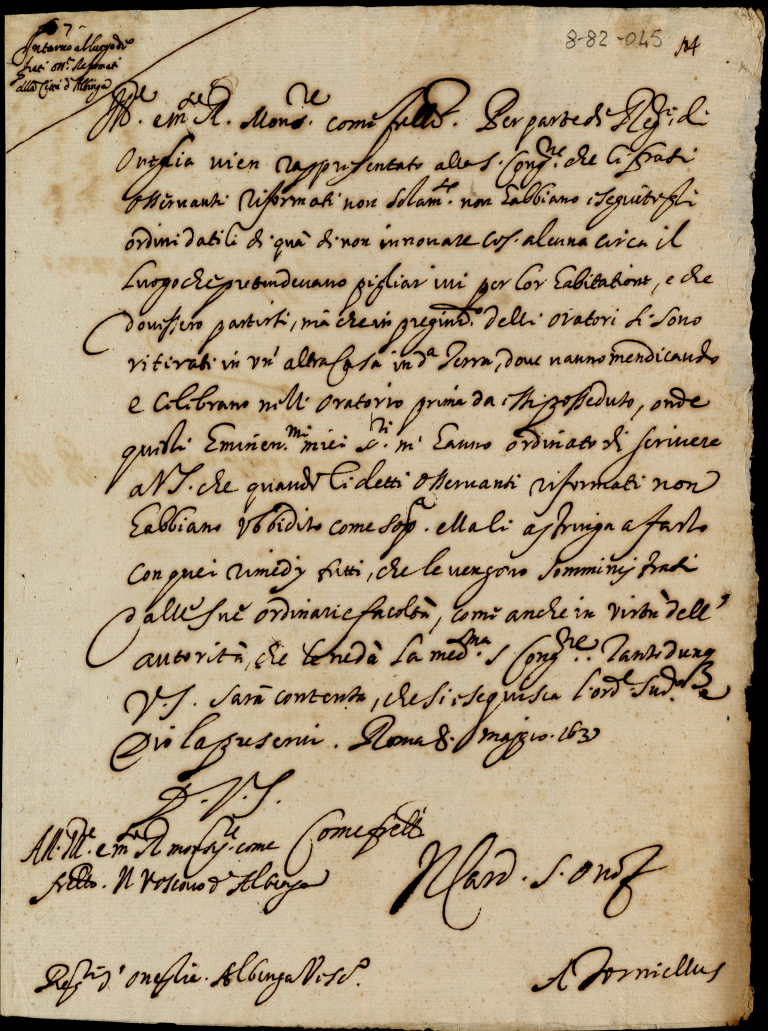 7
Intorno al luogo de
frati oss.ti Reformati
alla Città d'Albinga
8-82-045 114
Ill.re e m.to R. Mons.re come fr̃ello. Per parte de Reg.ti di
Oneglia vien rappresentato alla s. Cong.ne che li frati
osservanti riformati non solam.te non habbiano eseguito gli
ordini datili di quà di non innovare cos' alcuna circa il
luogo che pretendevano pigliar ivi per lor habitatione, e che
dovessero partirsi, mà che in pregiud.o delli oratori si sono
ritirati in un' altra Casa in d.a Terra, dove vanno mendicando
e celebrano nell' oratorio prima da essi posseduto, onde
questi Eminen.mi miei s.ri m' hanno ordinato di scrivere
a V.S. che quando li detti osservanti riformati non
habbiano ubbidito come sop.a ella li astringa a farlo
con quei rimedij tutti, che le vengono somministrati
dalle sue ordinarie facoltà, come anche in virtù dell'
autorità, che le ne dà la med.ma s. Cong.ne. Tanto dunq
V.S. sarà contenta, che si eseguisca l'ord.e sud.o
Dio la preservi. Roma 8. maggio. 163
D. V. S.
All' Ill.re e m.to R. monsig.re come Come fr̃ello
fr̃ello. Il Vescovo d'Albinga Il Card. S. Onof.
Reg.ti d' oneglia. Albinga Vesc.o A Torniellus